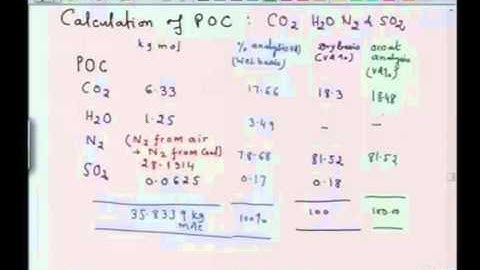 Calculation of POC : CO2 H2O N2 & SO2
kg mol % analysis (v%) (wet basis) Dry basis (v%) orsat analysis (v%)
POC
CO2 6.33 17.66 18.3 18.48
H2O 1.25 3.49 – –
N2 (N2 from air + N2 from Coal) 28.1914 78.68 81.52 81.52
SO2 0.0625 0.17 0.18
35.8339 kg mole 100% 100 100.00